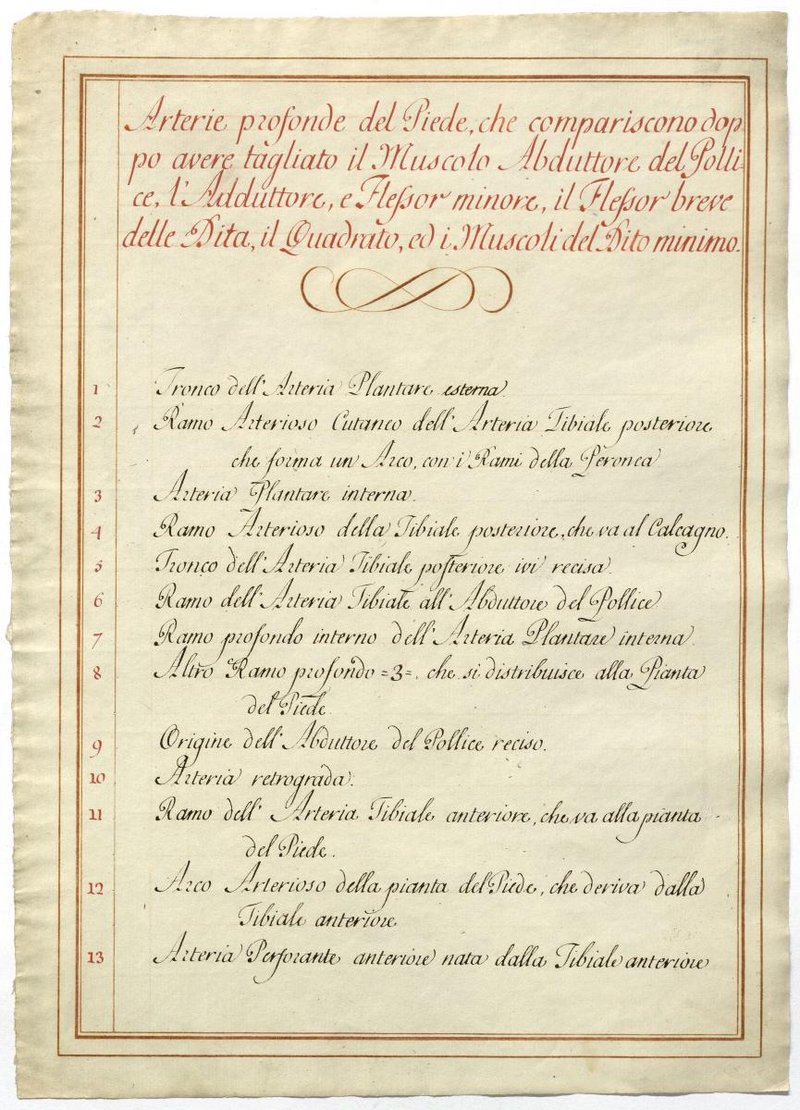 Arterie profonde del Piede, che compariscono dop=
po avere tagliato il Muscolo Abduttore del Polli=
ce, l'Adduttore, e Flessor minore, il Flessor breve
delle Dita, il Quadrato, ed i Muscoli del Dito minimo.
1 Tronco dell'Arteria Plantare esterna.
2 Ramo Arterioso Cutaneo dell'Arteria Tibiale posteriore,
che forma un Arco, con i Rami della Peronea
3 Arteria Plantare interna.
4 Ramo Arterioso della Tibiale posteriore, che va al Calcagno.
5 Tronco dell'Arteria Tibiale posteriore ivi recisa.
6 Ramo dell'Arteria Tibiale all'Abduttore del Pollice
7 Ramo profondo interno dell'Arteria Plantare interna.
8 Altro Ramo profondo =3=. che si distribuisce alla Pianta
del Piede.
9 Origine dell'Abduttore del Pollice reciso.
10 Arteria retrograda.
11 Ramo dell'Arteria Tibiale anteriore, che va alla pianta
del Piede.
12 Arco Arterioso della pianta del Piede, che deriva dalla
Tibiale anteriore
13 Arteria Perforante anteriore nata dalla Tibiale anteriore